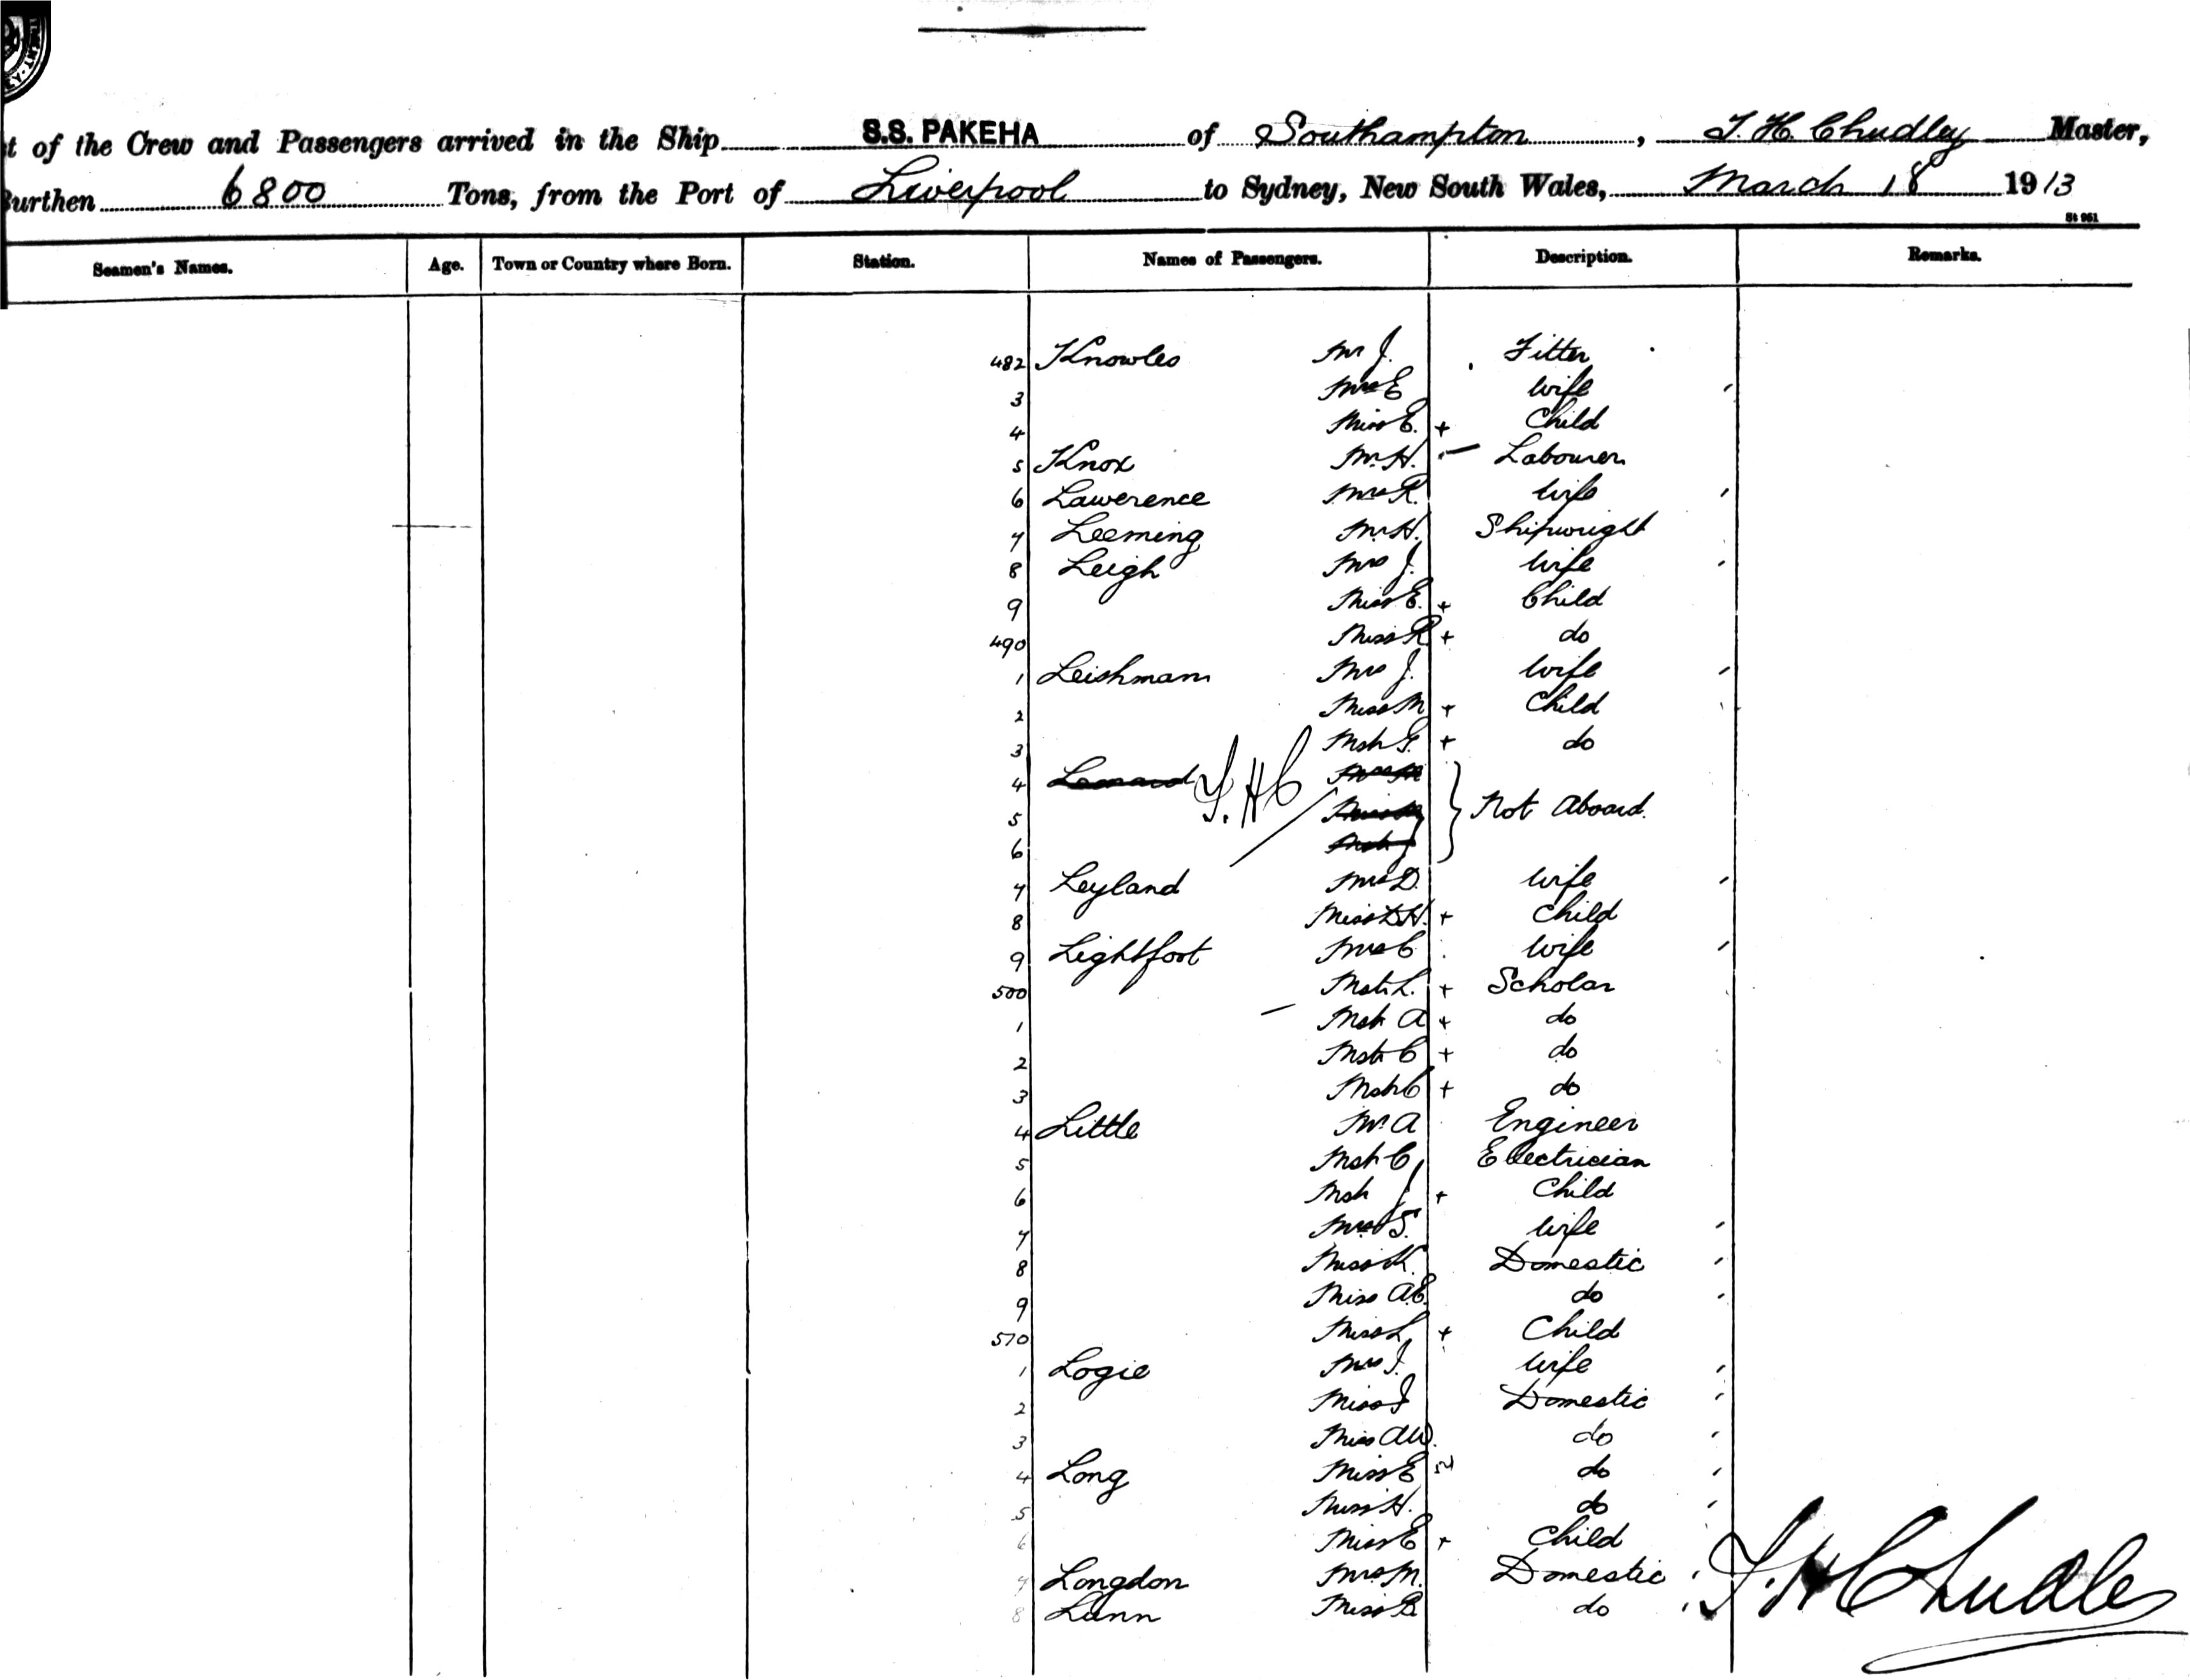 t of the Crew and Passengers arrived in the Ship S.S. PAKEHA of Southampton, T. H. Chudley Master,
Burthen 6800 Tons, from the Port of Liverpool to Sydney, New South Wales, March 18 1913
St 961
Seamen's Names. Age. Town or Country where Born. Station. Names of Passengers. Description. Remarks.
482 Knowles Mr J. Fitter
3 Mrs E Wife
4 Miss E. + Child
5 Knox Mr H. Labourer
6 Lawerence Mrs R. Wife
7 Leeming Mr H. Shipwright
8 Leigh Mrs J. Wife
9 Miss E. + Child
490 Miss R + do
1 Leishman Mrs J. Wife
2 Miss M + Child
3 Mstr G. + do
4 T.H.C
5 Not Aboard.
6
7 Leyland Mrs D. Wife
8 Miss D.H. + Child
9 Lightfoot Mrs C. Wife
500 Mstr L. + Scholar
1 Mstr A + do
2 Mstr C + do
3 Mstr C + do
4 Little Mr A Engineer
5 Mstr C Electrician
6 Mstr J + Child
7 Mrs S. Wife
8 Miss K. Domestic
9 Miss A.E. do
510 Miss L + Child
1 Logie Mrs I. Wife
2 Miss I Domestic
3 Miss A.W. do
4 Long Miss E do
5 Miss H. do
6 Miss E + Child
7 Longdon Mrs M. Domestic
8 Lunn Miss B do
T. H Chudley